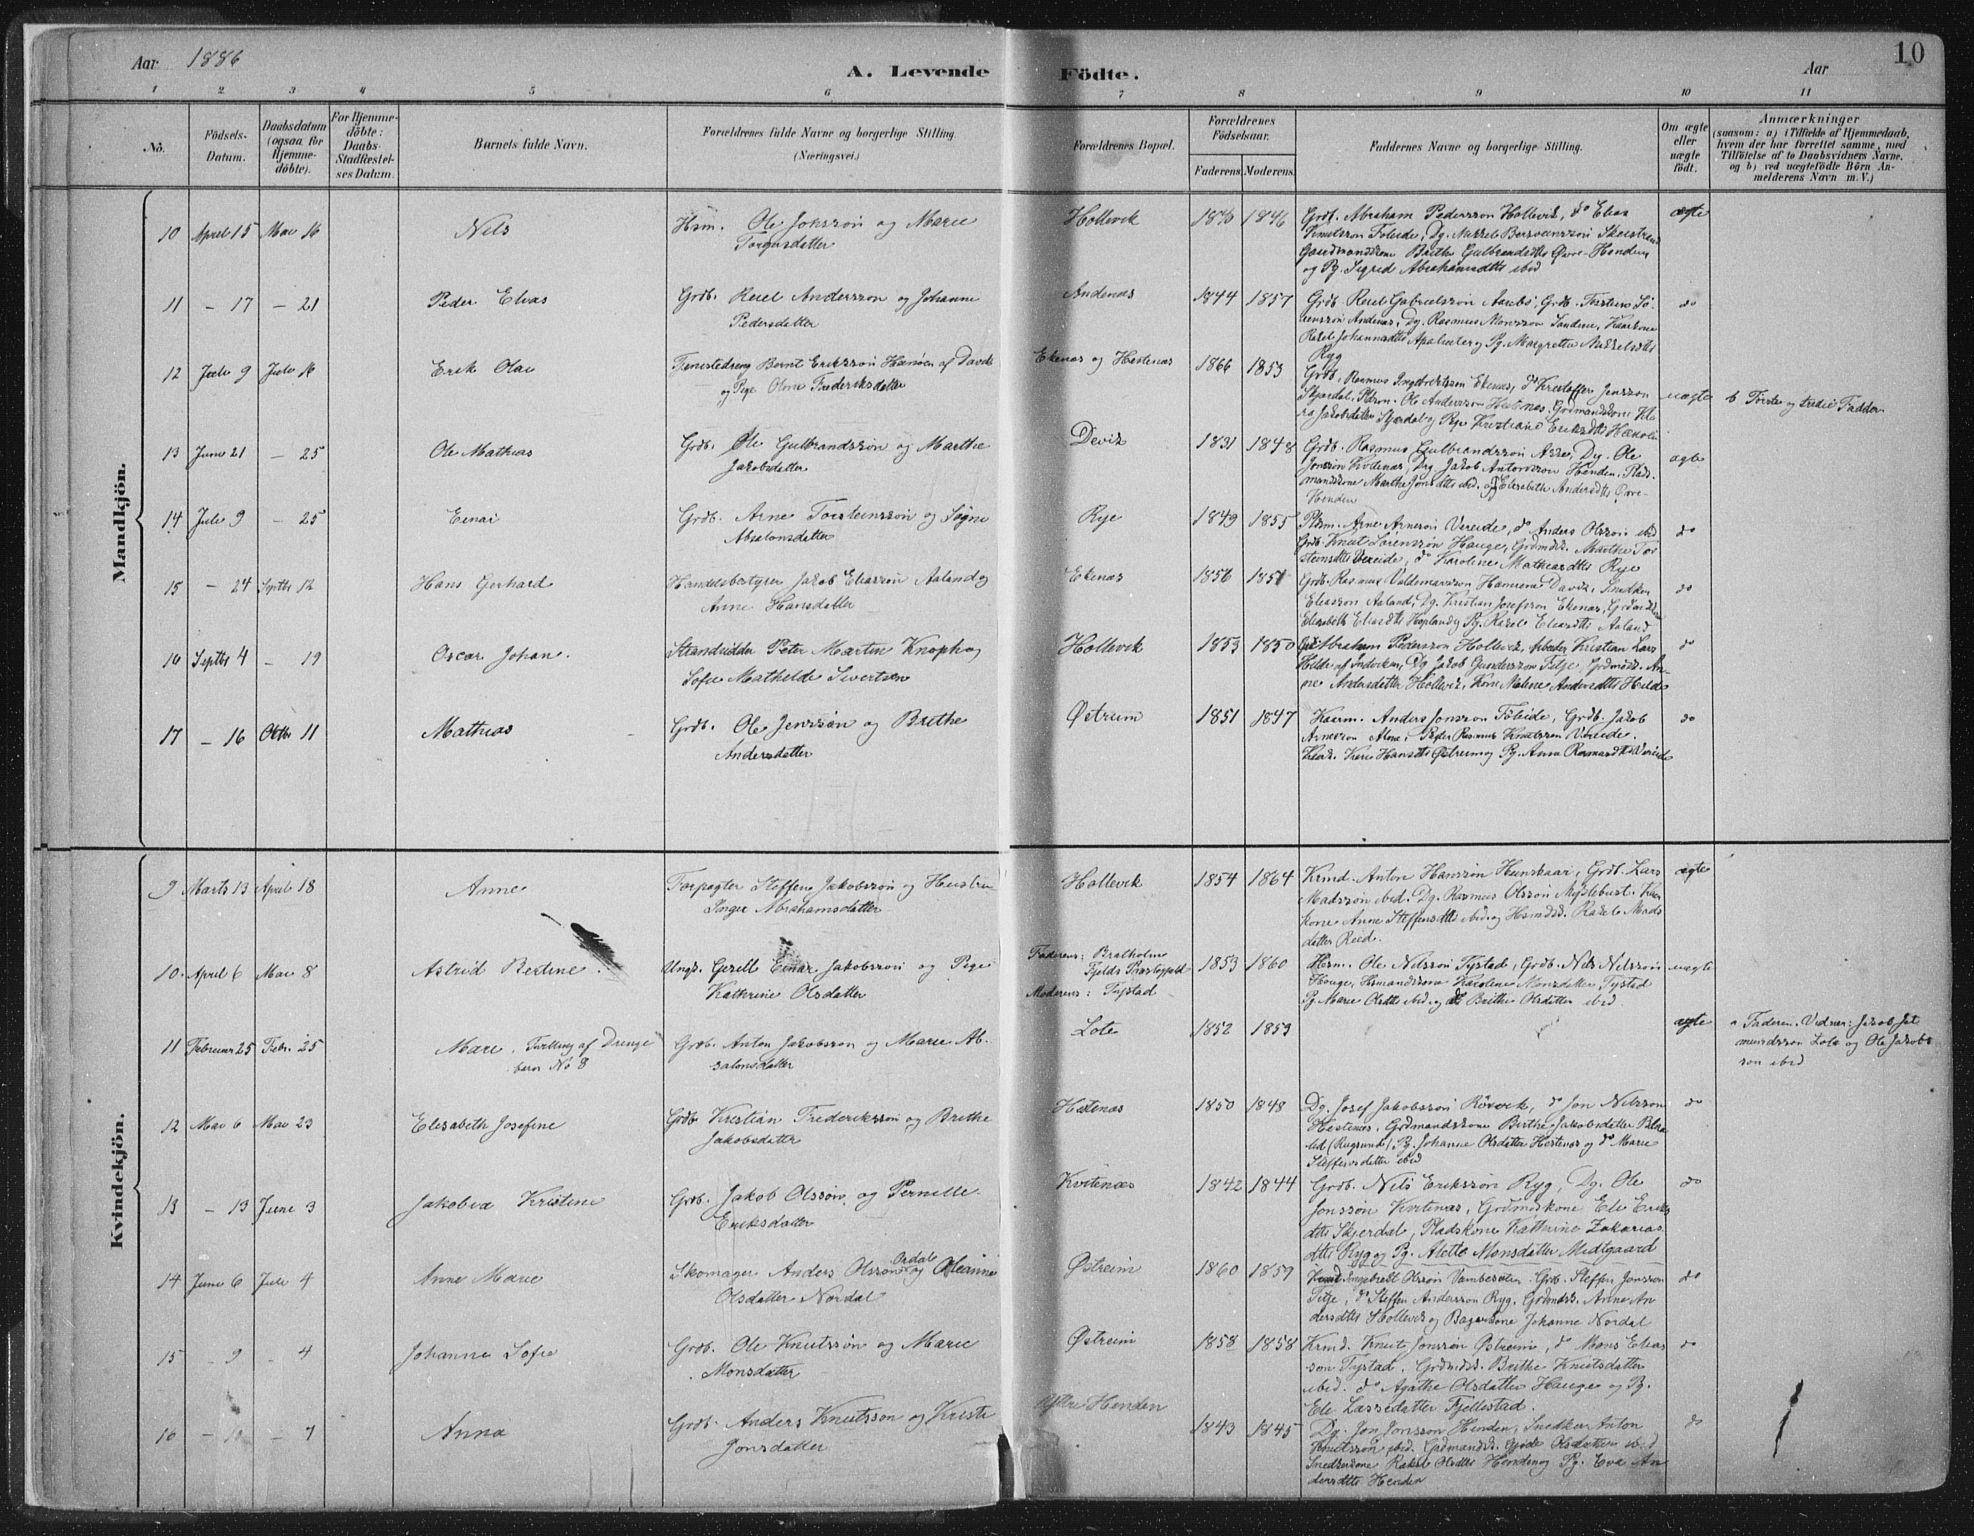 Aar 1886
A. Levende Födte.
Aar
10
1 2 3 4 5 6 7 8 9 10 11
No.
Födsels-Datum.
Daabsdatum (ogsaa for Hjemmedöbte).
For Hjemmedöbte: Daabs-Stadfæstelses Datum.
Barnets fulde Navn.
Forældrenes fulde Navne og borgerlige Stilling. (Næringsvei.)
Forældrenes Bopæl.
Forældrenes Födselsaar.
Faderens. Moderens.
Faddernes Navne og borgerlige Stilling.
Om ægte eller uægte födt.
Anmærkninger
(saasom: a) i Tilfælde af Hjemmedaab, hvem der har forrettet samme, med Tilföielse af to Daabsvidners Navne, og b) ved uægtefödte Börn Anmelderens Navn m. V.)
Mandkjön.
10 April 15 Mai 16 Nils
Hsm. Ole Jonssøn og Marie
Hollevik 1846
Grdb. Abraham Pederssøn Hollevik, do Elias
og Pg. Sigrid Abrahamsdtts ibid
ægte
11 – 17 – 21 Peder Elias
Grdb. Reiel Anderssøn og Johanne
Pedersdatter
Andenæs 1844 1857
Grdb. Reiel Gabrielssøn Aarebø, Grdb. Torstein Sö-
renssøn Andenæs, Dg. Rasmus Monssøn Sandene, Kaarkone
do
12 Juli 9 Juli 16 Erik Olai
Tjenestedreng Bernt Erikssøn Hansen af Davik
og Pige Oline Frederiksdatter
Ekenæs og Hestenæs 1866 1853
Ryg
Grdb. Rasmus Ingebrektssøn Ekenæs, do Kristoffer Jenssøn
uægte
b Förste og tredie Fadder
13 Juni 21 – 25 Ole Mathias
Grdb. Ole Gulbrandssøn og Marthe
Jakobsdatter
Devik 1831 1848
Grdb. Rasmus Gulbrandssøn Aske, Dg. Ole
Jonssøn Kvitenæs, Dg. Jakob Antonssøn Henden, Plads-
mandskone Marthe Jonsdtts ibid. og Elisabeth Andersdtts Övre-
Henden
ægte
14 Juli 9 – 25 Einar
Grdb. Arne Torsteinssøn og Signe
Absalonsdatter
Rye 1849 1855
Plsm. Arne Arnesøn Vereide, do Anders Olssøn ibid
Grdb. Knut Sörenssøn Hauge, Grdmdsk. Marthe Tor-
steinsdtts Vereide, do Karoline Mathiasdtts Rye
do
15 – 24 Septbr 12 Hans Gerhard
Handelsbestyrer Jakob Eliassøn Aaland og
Anne Hansdatter
Ekenæs 1856
Grdb. Rasmus Valdemarssøn Hamrene Davik, Snedker
Eliassøn Aaland, Dg. Kristian Josefssøn Ekenæs,
Elisabeth Eliasdtts Hopland og Pg. Rakel Eliasdtts Aaland
do
16 Septbr 4 – 19 Oscar Johan.
Strandsidder Peter Martin Knoph og
Sofie Mathilde Sivertsen
Hollevik 1853 1850
Grdb. Abraham Pederssøn Hollevik, Arbeider Kristian Lars
Hilde af Indviken, Dg. Jakob Gunderssøn Tilge, Grdmdsk. An-
ne Andersdatter Hollevik, Kone Malene Andersdtts Hilde
do
17 – 16 Oktbr 11 Mathias
Grdb. Ole Jenssøn og Brithe
Andersdatter
Østreim 1851 1847
Kaarm. Anders Jonssøn Föleide, Grdb. Jakob
Arnessøn Alme, Peder Rasmus Knutssøn Vereide.
Kari Hansdtts Østreim og Pg. Anna Rasmusdtts Vereide
do
Kvindekjön.
9 Marts 13 April 18 Anne
Forpagter Steffen Jakobssøn og Hustru
Inger Abrahamsdatter
Hollevik 1854 1864
Krmd. Anton Hanssøn Hunskaar, Grdb. Lars
Madssøn ibid. Dg. Rasmus Olssøn Myklebust. Kaar-
kone Anne Steffensdtts ibid. og Hsmdsk. Rakel Mads-
datter Reed.
ægte
10. April 6 Mai 8 Astrid Bertine.
Ungk. Gesell Einar Jakobssøn og Pige
Kathrine Olsdatter
Faderens: Bratholme
Fjelds Præstegjeld
Moderens: Tystad
1853 1860
Hsm. Ole Nilssøn Tystad, Grdb. Nils Nilssøn
Hauge, Hsmandskone Karoline Monsdatter Tystad
Pg. Marie Olsdtts ibid. og do Brithe Olsdatter ibid
uægte
11 Februar 25 Febr. 25 Mari. Tvilling af Drenge-
barn No 8
Grdb. Anton Jakobssøn og Marie Ab-
salonsdatter
Lote 1852 1859
ægte
a Faderen. Vidner: Jakob Jet-
mundssøn Lote og Ole Jakobs-
søn ibid
12 Mai 6 Mai 23 Elisabeth Josefine
Grdb. Kristian Frederikssøn og Brithe
Jakobsdatter
Hestenæs 1850 1848
Dg. Josef Jakobssøn Rövik, do Jon Nilssøn
Hestenæs, Grdmandskone Birthe Jakobsdatter
(Rugsund), Pg. Johanne Olsdatter Hestenæs og do Marie
Steffensdatter ibid
do
13 – 13 Juni 3 Jakobia Kristine
Grdb. Jakob Olssøn og Pernille
Eriksdatter
Kvitenæs 1842 1844
Grdb. Nils Erikssøn Ryg, Dg. Ole
Jonssøn Kvitenæs, Grdmdskone Eli Eriks-
dtts Skjerdal, Pladskone Kathrine Zakarias-
dtts Ryg og Pg. Alette Monsdatter Midtgaard
do
14 Juni 6 Juli 4 Anne Marie
Skomager Anders Olssøn Ordal og Oleanne
Olsdatter Nordal
Østreim 1860 1859
Ingebrekt Olssøn Vambeseten. Grdb. Steffen Jonssøn
Tilje, do Steffen Anderssøn Ryg, Grdmdsk. Anne An-
dersdtts Hollevik og Bagerkone Johanne Nordal
do
15 – 9 – 4 Johanne Sofie
Grdb. Ole Knutssøn og Marie
Monsdatter
Østreim 1858 1858
Krmd. Knut Jonssøn Østreim, do Mons Elias-
søn Tystad, Grdmdsk. Brithe Knutsdatter
ibid. do Agathe Olsdatter Hauge og Pg.
Eli Lassedatter Fjellestad.
do
16 – 10 – 7 Anna
Grdb. Anders Knutssøn og Kristi
Jonsdatter
Ytre Henden
1843 1845
Dg. Jon Jonssøn Henden, Snedker Anton
Knutssøn ibid. Grdmandsk. Gjøde Olsdatter ibid
Snedkerkone Rakel Olsdtts Henden og Pg. Eva An-
dersdtts Henden
do